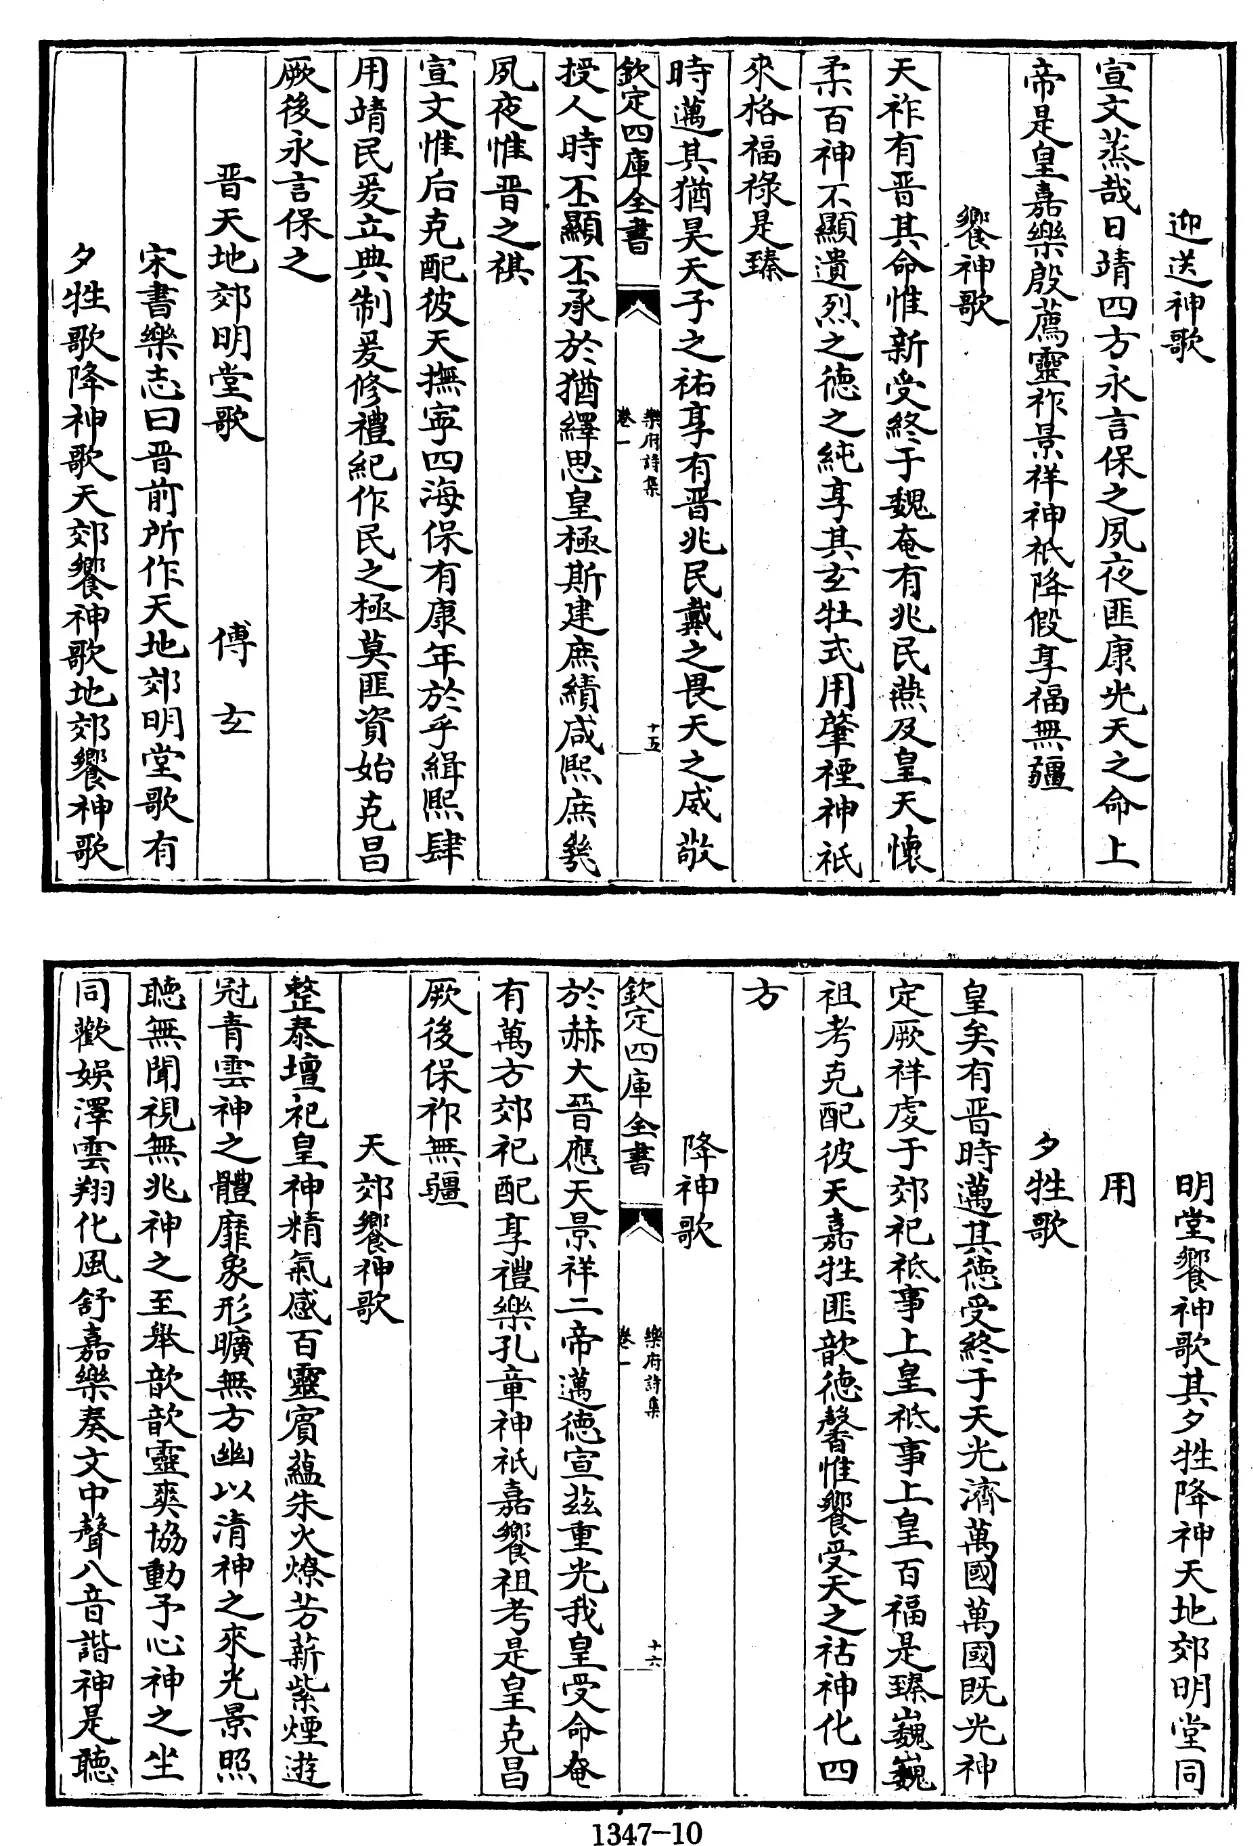 迎送神歌
宣文蒸哉日靖四方永言保之夙夜匪康光天之命上
帝是皇嘉樂殷薦靈祚景祥神祇降假享福無疆
饗神歌
天祚有晋其命惟新受終于魏奄有兆民燕及皇天懷
柔百神不顯遺烈之德之純享其玄牡式用肇禋神祇
來格福祿是臻
時邁其猶昊天子之祐享有晋兆民戴之畏天之威敬
欽定四庫全書
樂府詩集
卷一
十五
授人時丕顯丕承於猶繹思皇極斯建庶績咸熙庶幾
夙夜惟晋之祺
宣文惟后克配彼天撫寕四海保有康年於乎緝熙肆
用靖民爰立典制爰修禮紀作民之極莫匪資始克昌
厥後永言保之
晋天地郊明堂歌 傅玄
宋書樂志曰晋前所作天地郊明堂歌有
夕牲歌降神歌天郊饗神歌地郊饗神歌
明堂饗神歌其夕牲降神天地郊明堂同
用
夕牲歌
皇矣有晋時邁其德受終于天光濟萬國萬國既光神
定厥祥虔于郊祀祗事上皇祗事上皇百福是臻巍巍
祖考克配彼天嘉牲匪歆德馨惟饗受天之祜神化四
方
降神歌
欽定四庫全書
樂府詩集
卷一
十六
於赫大晋應天景祥二帝邁德宣兹重光我皇受命奄
有萬方郊祀配享禮樂孔章神祇嘉饗祖考是皇克昌
厥後保祚無疆
天郊饗神歌
整泰壇祀皇神精氣感百靈賓蘊朱火燎芳薪紫煙遊
冠青雲神之體靡象形曠無方幽以清神之來光景照
聴無聞視無兆神之至舉歆歆靈爽協動予心神之坐
同歡娛澤雲翔化風舒嘉樂奏文中聲八音諧神是聴
1347-10